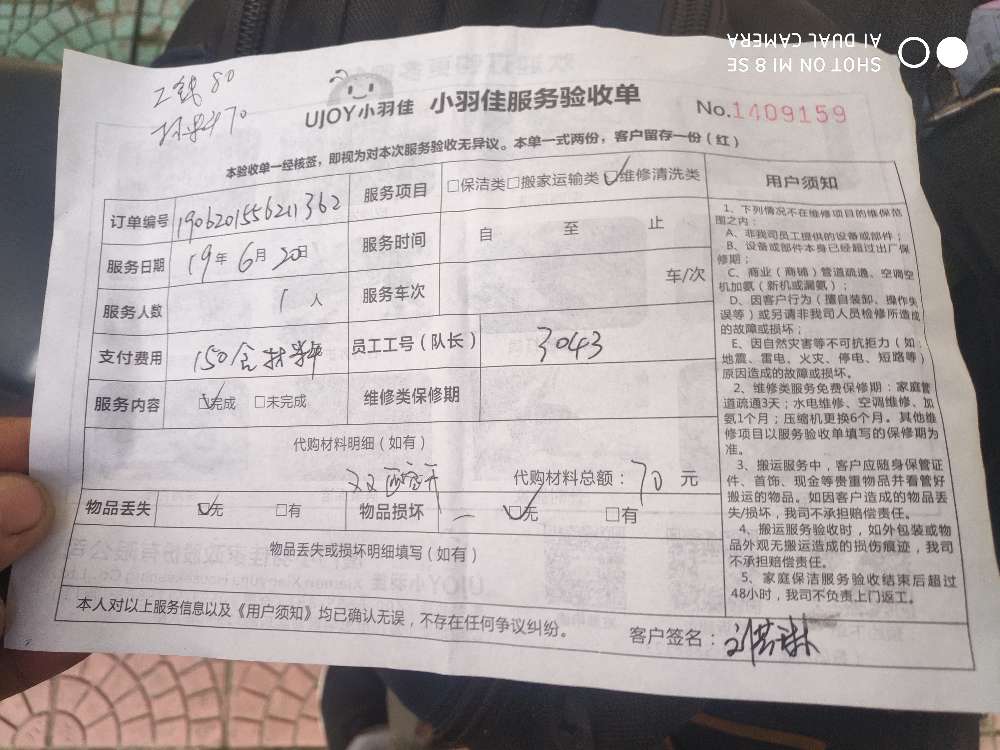 SHOT ON MI 8 SE
AI DUAL CAMERA
工钱80
材料70
UJOY小羽佳 小羽佳服务验收单
No.1409159
本验收单一经核签，即视为对本次服务验收无异议。本单一式两份，客户留存一份（红）
订单编号 1906201556211362
服务项目 □保洁类□搬家运输类☑维修清洗类
服务日期 19年6月20日
服务时间 自 至 止
服务人数 1人
服务车次 车/次
支付费用 150含材料
员工工号（队长） 3043
服务内容 ☑完成 □未完成
维修类保修期
代购材料明细（如有）
代购材料总额：70元
物品丢失 ☑无 □有
物品损坏 ☑无 □有
物品丢失或损坏明细填写（如有）
本人对以上服务信息以及《用户须知》均已确认无误，不存在任何争议纠纷。
客户签名：
用户须知
1、下列情况不在维修项目的维保范
围之内：
A、非我司员工提供的设备或部件；
B、设备或部件本身已经超过出厂保
修期；
C、商业（商铺）管道疏通、空调空
机加氨（新机或漏氨）；
D、因客户行为（擅自装卸、操作失
误等）或另请非我司人员检修所造成
的故障或损坏；
E、因自然灾害等不可抗拒力（如：
地震、雷电、火灾、停电、短路等）
原因造成的故障或损坏。
2、维修类服务免费保修期：家庭管
道疏通3天；水电维修、空调维修、加
氨1个月；压缩机更换6个月。其他维
修项目以服务验收单填写的保修期为
准。
3、搬运服务中，客户应随身保管证
件、首饰、现金等贵重物品并看管好
搬运的物品。如因客户造成的物品丢
失/损坏，我司不承担赔偿责任。
4、搬运服务验收时，如外包装或物
品外观无搬运造成的损伤痕迹，我司
不承担赔偿责任。
5、家庭保洁服务验收结束后超过
48小时，我司不负责上门返工。